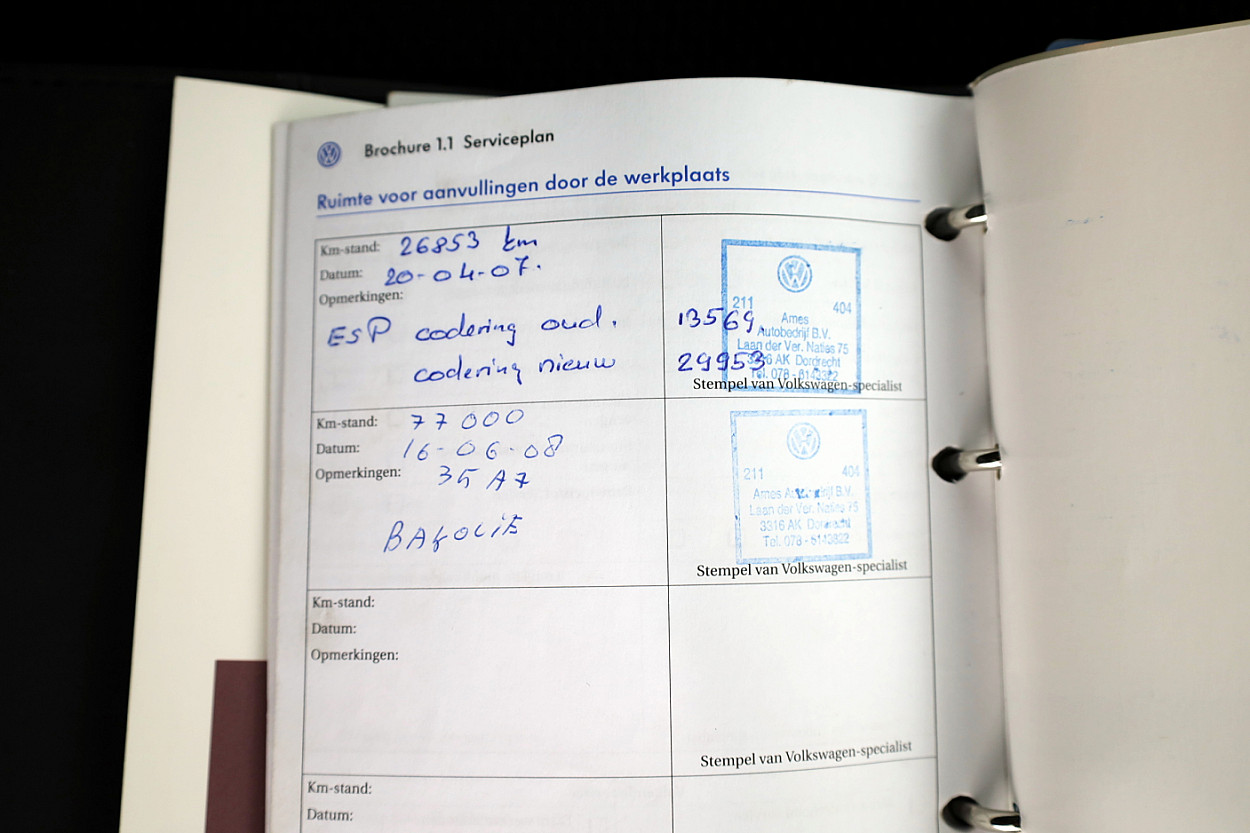 Brochure 1.1 Serviceplan
Ruimte voor aanvullingen door de werkplaats
Km-stand: 26853 km
Datum: 20-04-07.
Opmerkingen:
ESP codering oud. 13569
codering nieuw 29953
211 404
Ames
Autobedrijf B.V.
Laan der Ver. Naties 75
3316 AK Dordrecht
Tel. 078 - 6143822
Stempel van Volkswagen-specialist
Km-stand: 77000
Datum: 16-06-08
Opmerkingen: 35 A7
211 404
Ames Autobedrijf B.V.
Laan der Ver. Naties 75
3316 AK Dordrecht
Tel. 078 - 6143822
Stempel van Volkswagen-specialist
Km-stand:
Datum:
Opmerkingen:
Stempel van Volkswagen-specialist
Km-stand:
Datum: